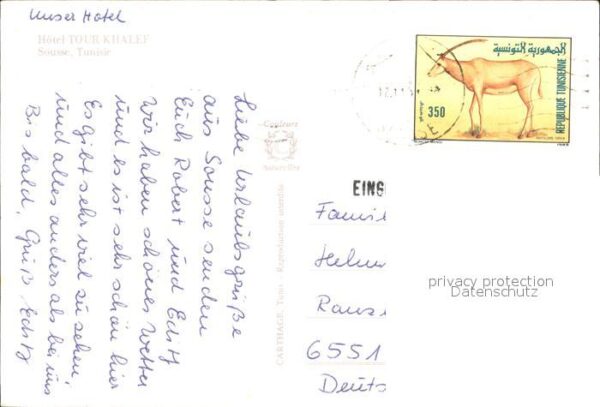 Unser Hotel
Hôtel TOUR KHALEF
Sousse, Tunisie
Liebe Urlaubsgrüße
aus Sousse senden
Euch Robert und Edith
Wir haben schönes Wetter
und es ist sehr schön hier
Es gibt sehr viel zu sehen,
und alles anders als bei uns
Bis bald, Gruß Edith
Couleurs
Naturelles
CARTHAGE, Tunis - Reproduction interdite
الجمهورية التونسية
REPUBLIQUE TUNISIENNE
350
EING
Famil
Helmu
6551
Deuts
privacy protection
Datenschutz